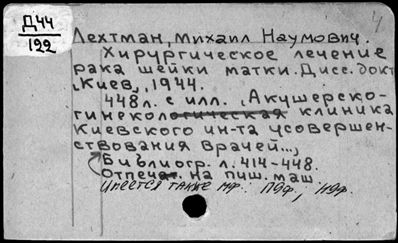 Д44
199
4
Лехтман, Михаил Наумович.
Хирургическое лечение
рака шейки матки. Дисс. докт.
Киев, 1944.
448 л. с илл. (Акушерско-
гинекологическая клиника
Киевского ин-та усовершен-
ствования врачей...)
Библиогр. л. 414-448.
Отпечат. на пиш. маш.
Имеется также мф.: